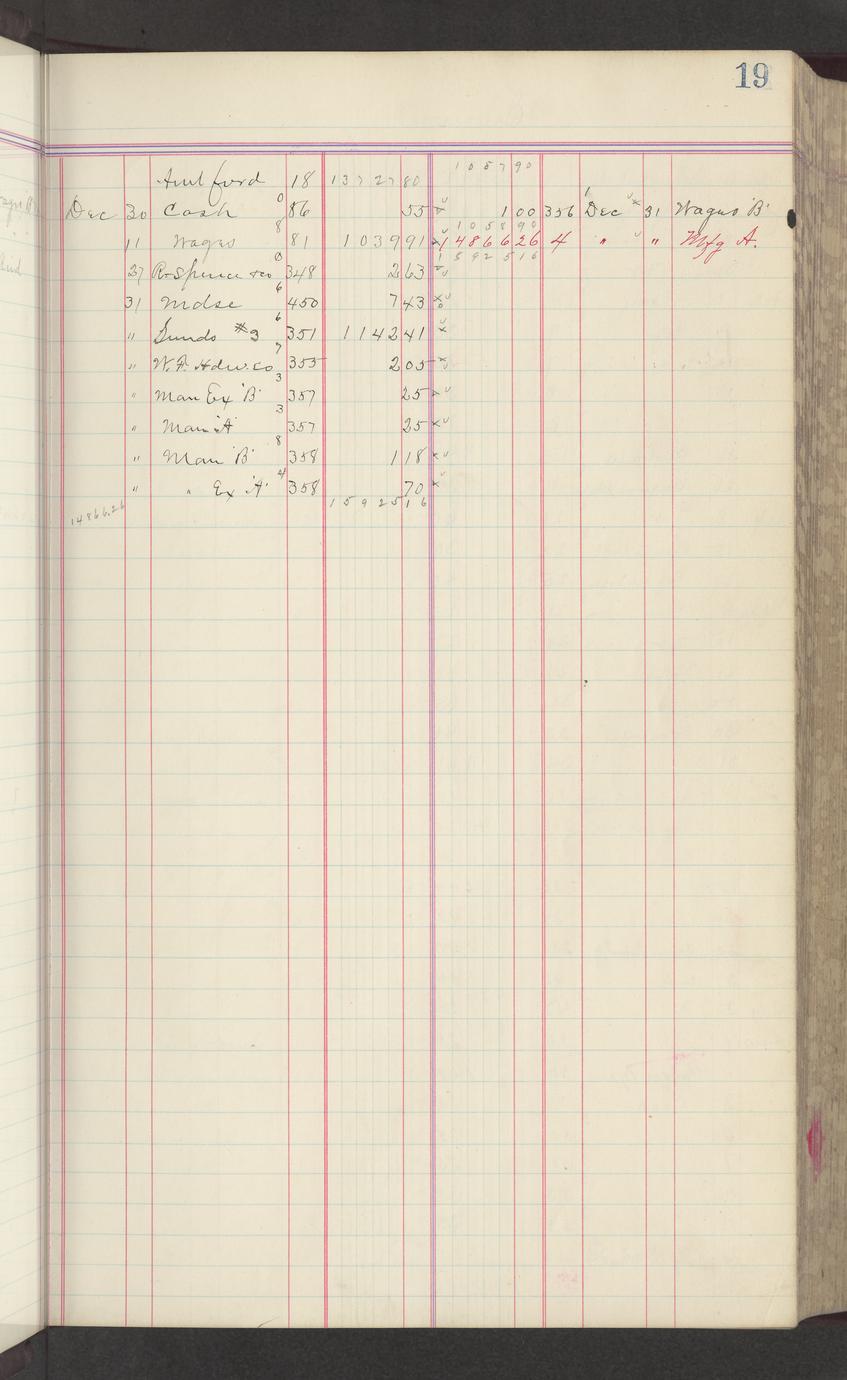 19
Amt ford 18 13727 80 1057 90
Dec 30 Cash 0 86 55 1 00 356 Dec 31 Wages "B"
1058 90
11 Wages 8 81 1039 91 14866 26 4 " " Mfg A.
15925 16
27 R. Spence & Co 0 348 2 63
31 Mdse 6 450 7 43
" Sunds #3 6 351 1142 41
" W. F. Hdw. Co 7 355 2 05
" Man Ex "B" 3 357 25
" Man "A" 3 357 25
" Man "B" 8 358 1 18
" " Ex "A" 4 358 70
15925 16
14866.26